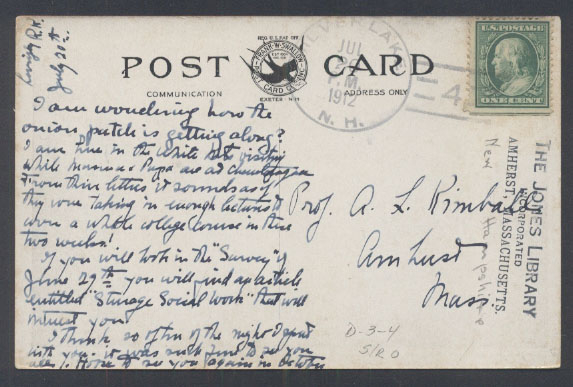 July 20th
REG. U.S. PAT. OFF.
FRANK W. SWALLOW
POST CARD CO. INC.
POST CARD
COMMUNICATION
EXETER N H
ADDRESS ONLY
SILVER LAKE
JUL
P.M.
1912
N. H.
U.S. POSTAGE
ONE CENT
I am wondering how the
onion patch is getting along?
I am here in the White Mts visiting
while Mamma & Papa are at
From their letters it sounds as if
they were taking in enough lectures to
cover a whole college course in these
two weeks!
If you will look in the "Survey" of
June 29th you will find an article
entitled "Storage Social Work" that will
interest you!
I think so often of the night I spent
with you. it was such fun to see you
all! Hope to see you again in October
Prof. A. L. Kimball
Amherst
Mass.
THE JONES LIBRARY
INCORPORATED
AMHERST, MASSACHUSETTS.
New Hampshire
D-3-4
S/R O